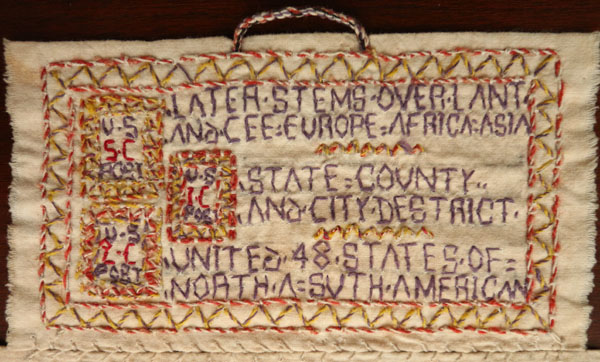 U·S
S.C
PORT
U·S
I.C
POST
U·S
2.C
PORT
LATER·STEMS·OVER·LANT.
AND·CEE=EUROPE=AFRICA:ASIA
STATE=COUNTY..
AND·CITY·DESTRICT·
UNITED·48·STATES·OF=
NORTH·A=SVTH·AMERICAN